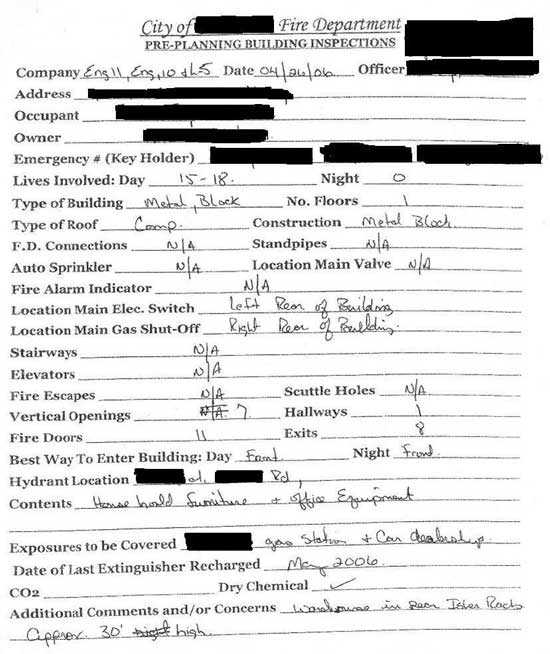 City of Fire Department
PRE-PLANNING BUILDING INSPECTIONS
Company Eng 11, Eng, 10 & L-5 Date 04/26/06 Officer
Address
Occupant
Owner
Emergency # (Key Holder)
Lives Involved: Day 15-18. Night 0
Type of Building Metal, Block No. Floors 1
Type of Roof Comp. Construction Metal Block
F.D. Connections N/A Standpipes N/A
Auto Sprinkler N/A Location Main Valve N/A
Fire Alarm Indicator N/A
Location Main Elec. Switch Left Rear of Building
Location Main Gas Shut-Off Right Rear of Building.
Stairways N/A
Elevators N/A
Fire Escapes N/A Scuttle Holes N/A
Vertical Openings N/A 7 Hallways 1
Fire Doors 11 Exits 8
Best Way To Enter Building: Day Front Night Front
Hydrant Location at. Rd,
Contents House hold furniture + office Equipment
Exposures to be Covered gas Station + Car dealership.
Date of Last Extinguisher Recharged May 2006
CO2 Dry Chemical ✓
Additional Comments and/or Concerns Warehouse in rear
Approx. 30' high.